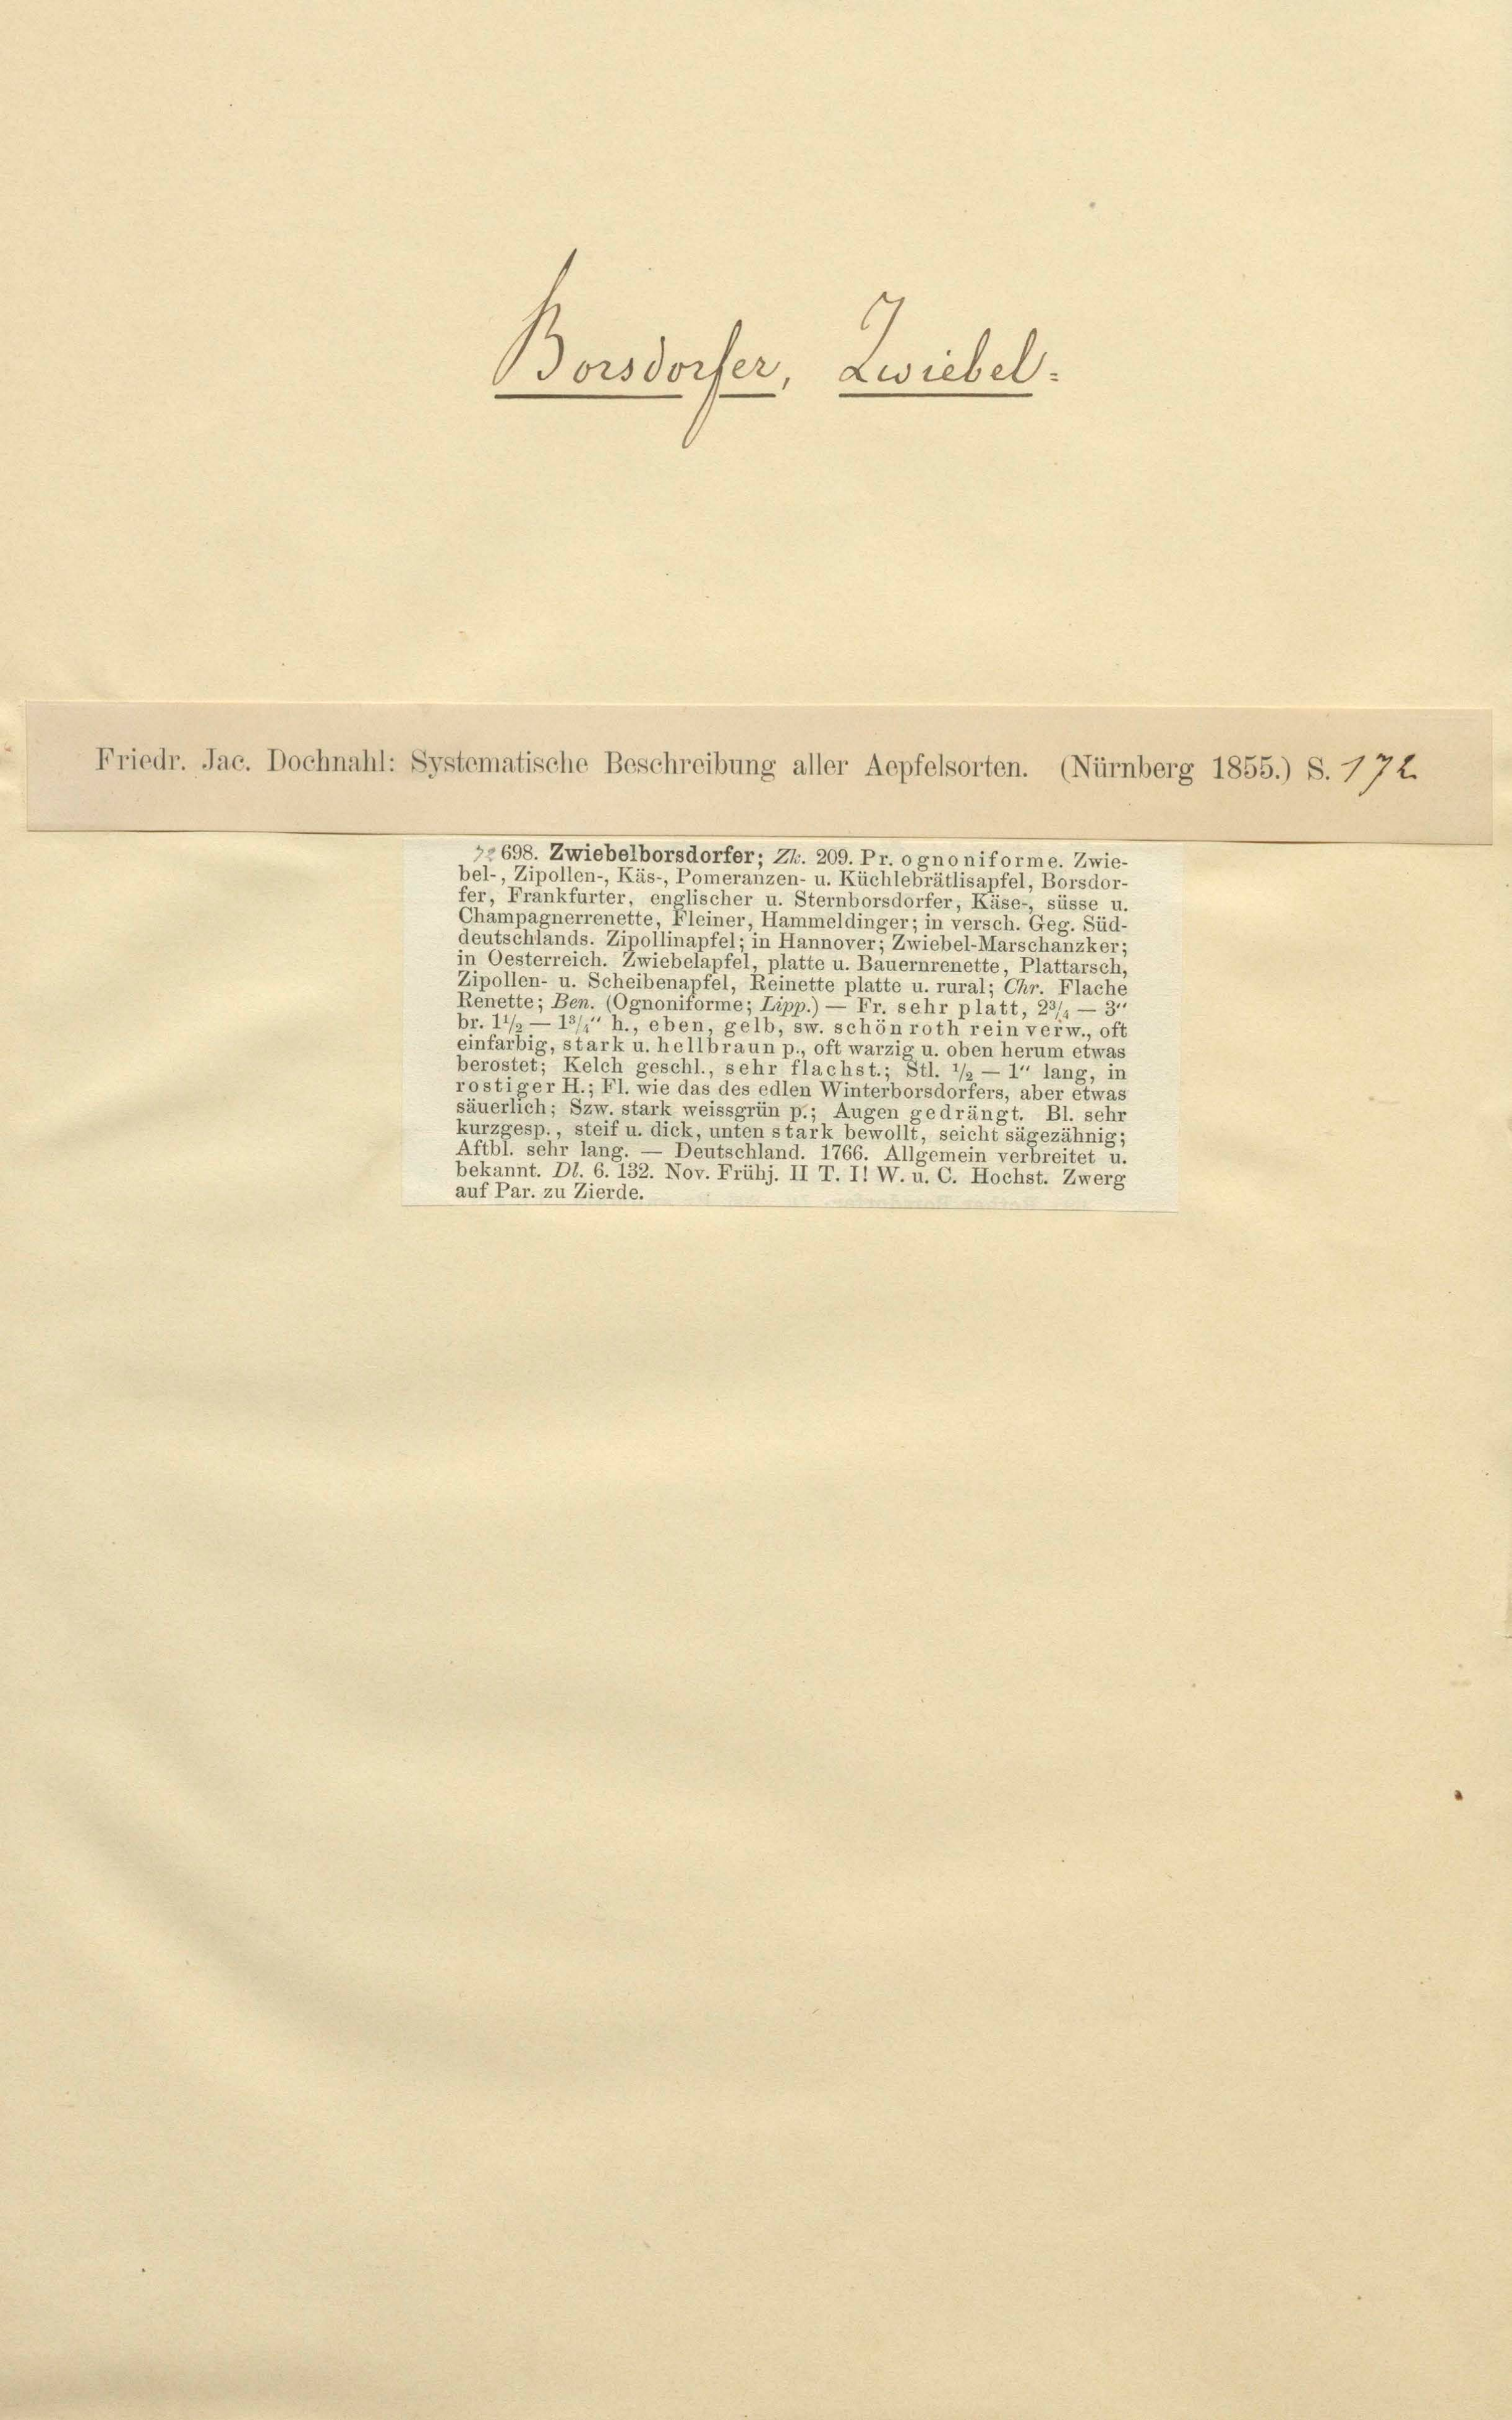 Borsdorfer, Zwiebel=
Friedr. Jac. Dochnahl: Systematische Beschreibung aller Aepfelsorten. (Nürnberg 1855.) S. 172
698. Zwiebelborsdorfer; Zk. 209. Pr. ognoniforme. Zwie-
bel-, Zipollen-, Käs-, Pomeranzen- u. Küchlebrätlisapfel, Borsdor-
fer, Frankfurter, englischer u. Sternborsdorfer, Käse-, süsse u.
Champagnerrenette, Fleiner, Hammeldinger; in versch. Geg. Süd-
deutschlands. Zipollinapfel; in Hannover; Zwiebel-Marschanzker;
in Oesterreich. Zwiebelapfel, platte u. Bauernrenette, Plattarsch,
Zipollen- u. Scheibenapfel, Reinette platte u. rural; Chr. Flache
Renette; Ben. (Ognoniforme; Lipp.) — Fr. sehr platt, 2¾ — 3"
br. 1½ — 1¾" h., eben, gelb, sw. schön roth rein verw., oft
einfarbig, stark u. hellbraun p., oft warzig u. oben herum etwas
berostet; Kelch geschl., sehr flachst.; Stl. ½ — 1" lang, in
rostiger H.; Fl. wie das des edlen Winterborsdorfers, aber etwas
säuerlich; Szw. stark weissgrün p.; Augen gedrängt. Bl. sehr
kurzgesp., steif u. dick, unten stark bewollt, seicht sägezähnig;
Aftbl. sehr lang. — Deutschland. 1766. Allgemein verbreitet u.
bekannt. Dl. 6. 132. Nov. Frühj. II T. I! W. u. C. Hochst. Zwerg
auf Par. zu Zierde.